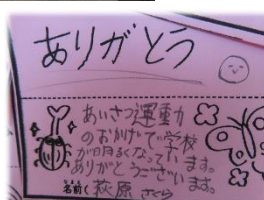 ありがとう
あいさつ運動
のおかげで学校
が明るくなってい
ます。
ありがとうございます。
名前( 萩原 さくら